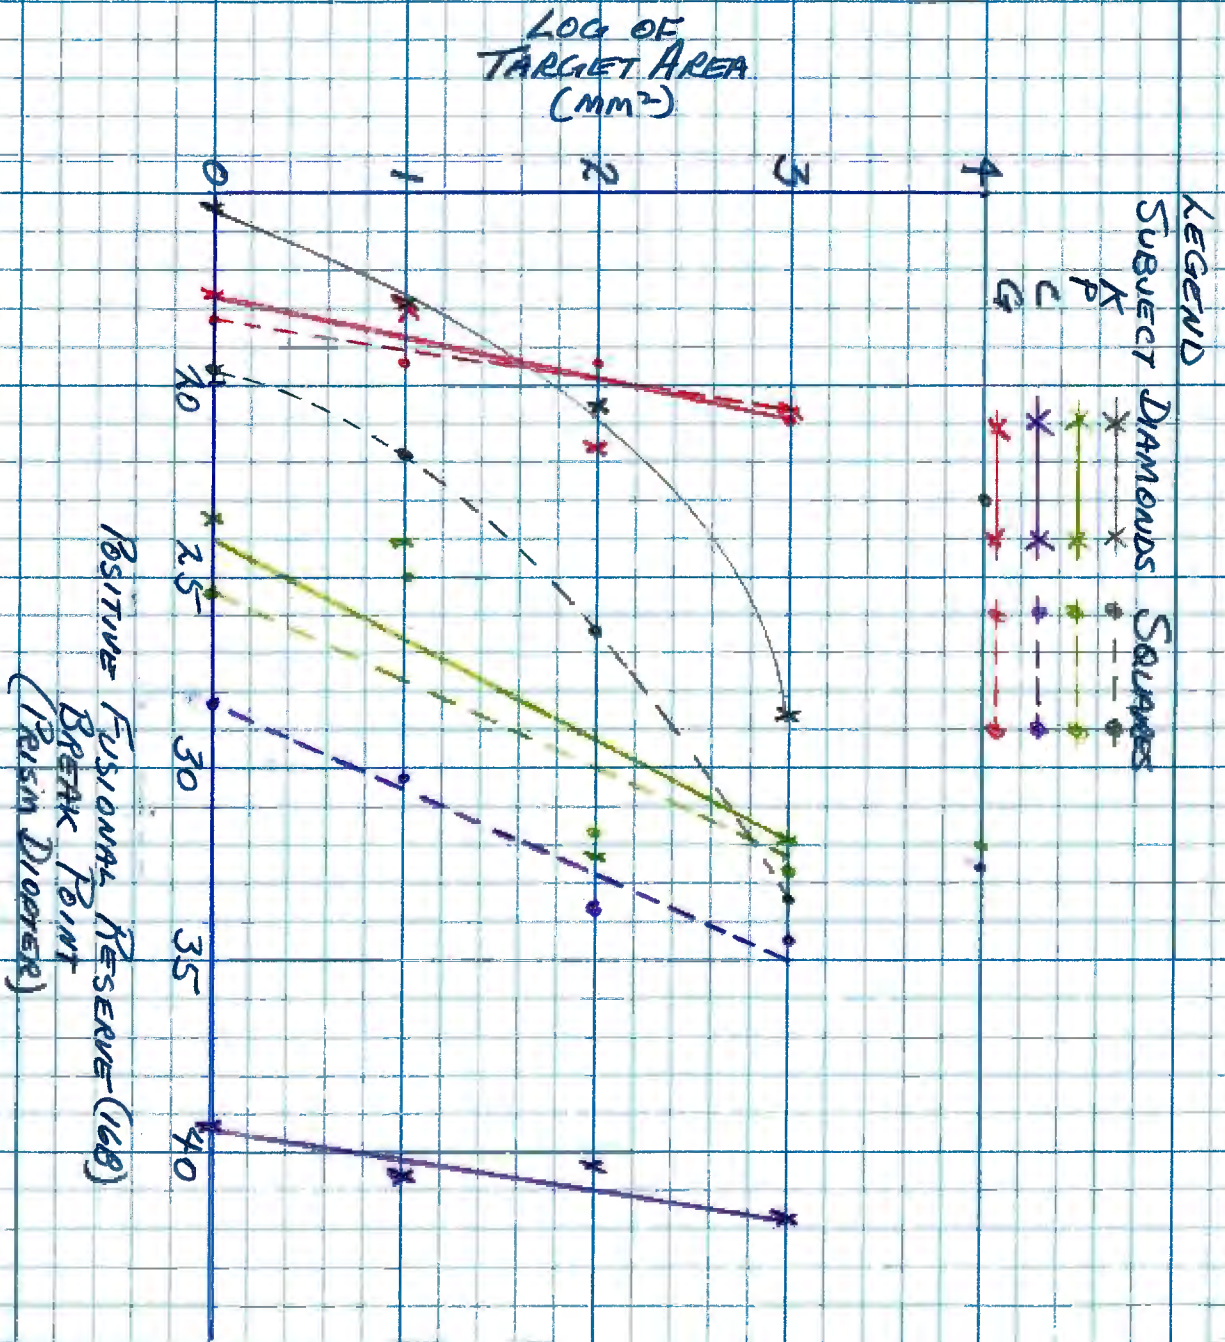 LOG OF
TARGET AREA
(MM²)
0
1
2
3
4
LEGEND
SUBJECT DIAMONDS SQUARES
K
P
C
G
20
25
30
35
40
POSITIVE FUSIONAL RESERVE (16B)
BREAK POINT
(PRISM DIOPTER)